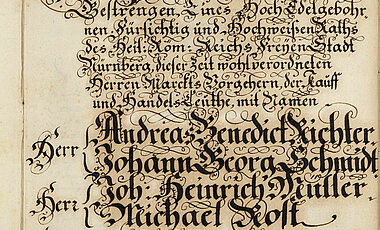 Gestrengen, Eines Hoch Edelgebohr-
nen Fürsichtig und Hochweisen Raths
des Heil: Röm: Reichs Freyen Stadt
Nürnberg, dieser Zeit wohlverordneten
Herren Marckts Vorgehern, der Kauff
und Handels Leuthe, mit Namen
Herr Andreas Benedict Richter.
Johann Georg Schmidt
Herr Joh: Heinrich Müller
Michael Rost